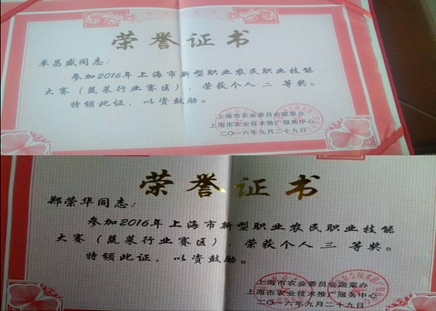 荣誉证书
卓昌盛同志：
参加2016年上海市新型职业农民职业技能
大赛（蔬菜行业赛区），荣获个人二等奖。
特颁此证，以资鼓励。
上海市农业委员会蔬菜办
上海市农业技术推广服务中心
二〇一六年九月二十九日
荣誉证书
郑荣华同志：
参加2016年上海市新型职业农民职业技能
大赛（蔬菜行业赛区），荣获个人三等奖。
特颁此证，以资鼓励。
上海市农业委员会蔬菜办
上海市农业技术推广服务中心
二〇一六年九月二十九日